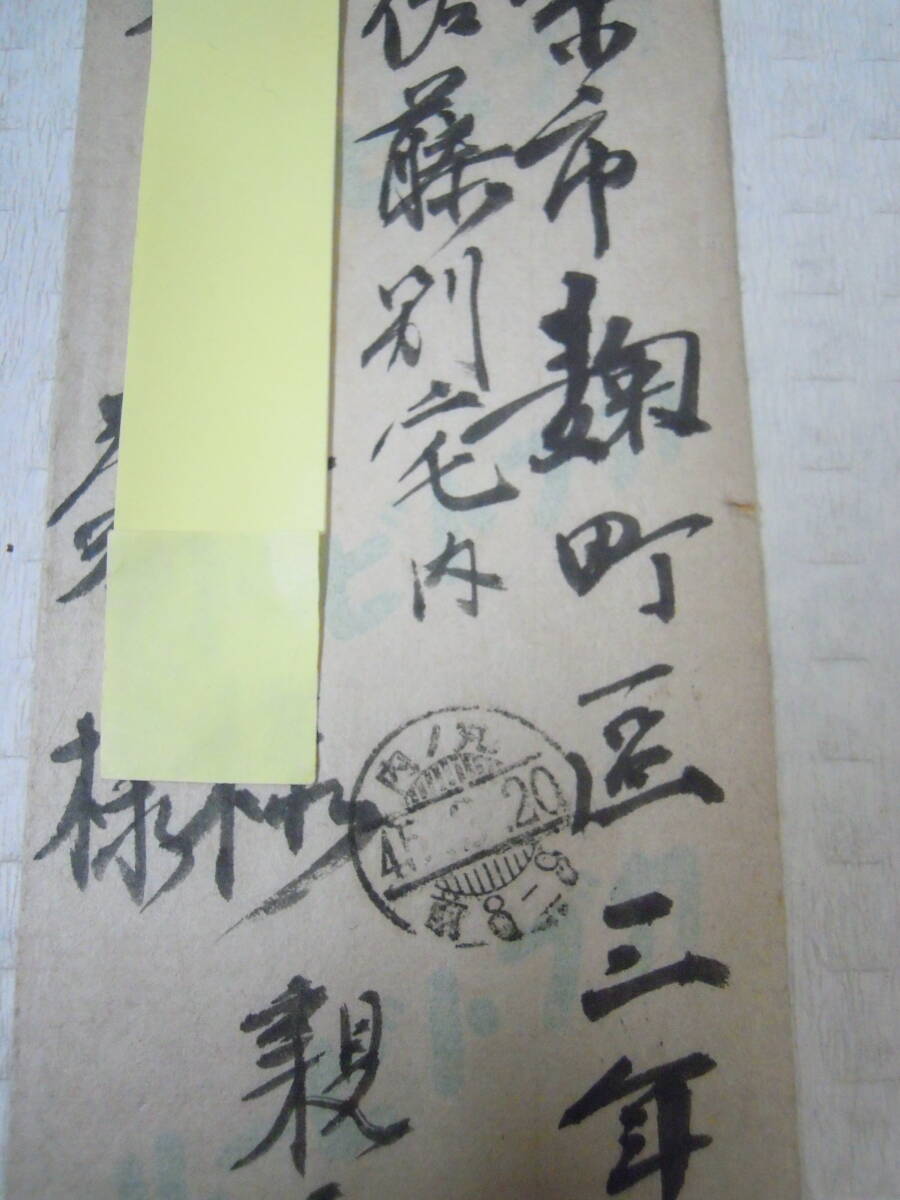 京市麹町區三年
佐藤別宅内
様 様
親
丸ノ内
4 20
前8-9